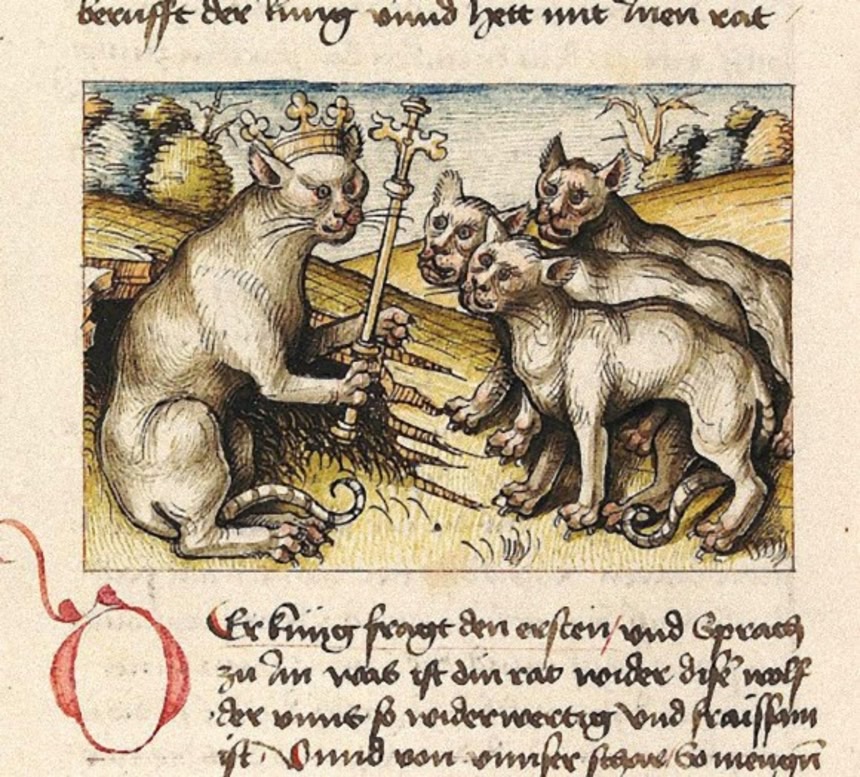 berufft der kung vnnd hett mit Inen rat
Er kung fragt den ersten / vnd sprach
zu Im was ist din rat wider dise wolf
der vnns so widerwertig vnd fraissam
ist. Vnnd von vnnser schar So menngen